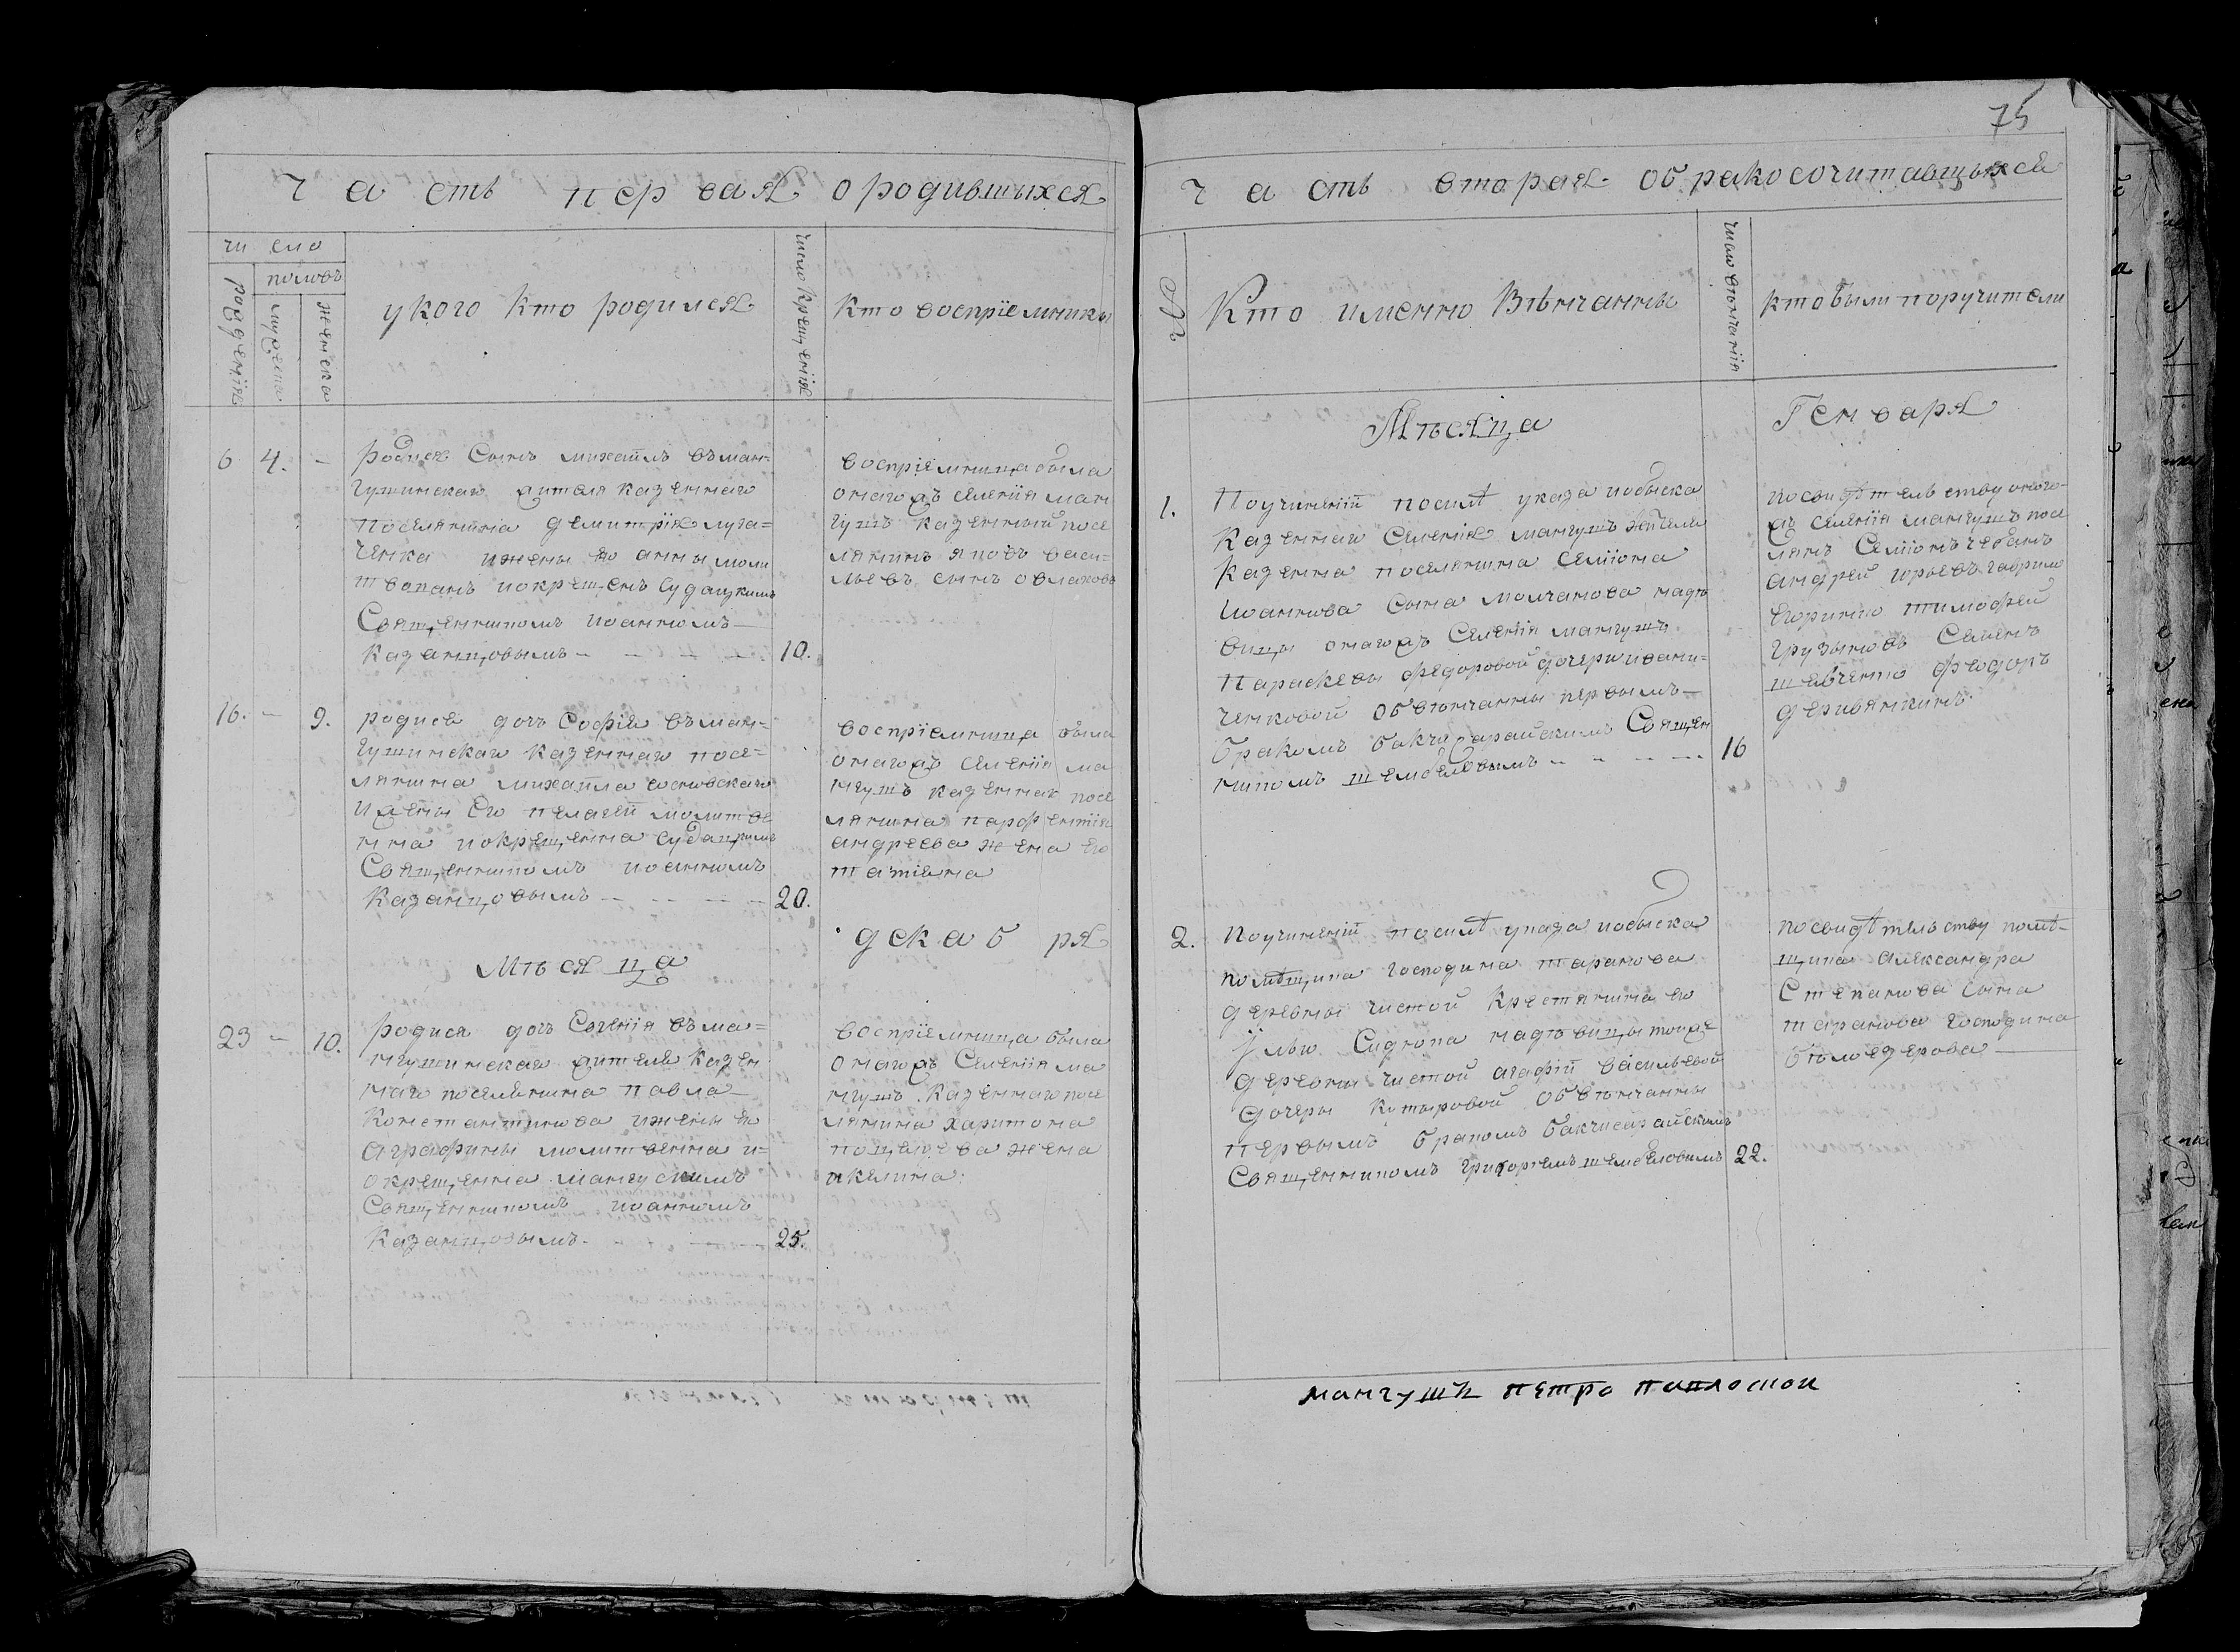 часть первая ородившыхся
число
половъ
рождения
мужеска
женска
укого кто родился
число крещения
кто восприемники
6 4. -
родися Сынъ михаилъ въман=
гушинскаго жителя казеннаго
поселянина демитрія луга=
ченка ижены его анны моли
твованъ икрещенъ Судацкимъ
Священникомъ иоанномъ
казанцовымъ - - - - 10.
восприемница была
онагожъ селенія ман
гушъ казенный посе
лянинъ яковъ васи=
льевъ сынъ
16. - 9.
родися дочь Софія въман=
гушинскаго казеннаго посе=
лянина михаила
ижены Его пелагеи молитве
нна икрещенна Судацкимъ
Священникомъ иоанномъ
казанцовымъ - - - - 20.
восприемница была
онагожъ селенія ма
нгушъ казеннаго посе
лянина парфентія
андреева жена его
татіана
Мѣсяца
декабря
23 - 10.
родися дочь Евгенія въма=
нгушинскаго жителя казен
наго поселянина павла
Константинова ижены его
аграфины молитвенна и=
окрещенна мангускимъ
Священникомъ иоанномъ
казанцовымъ. - - - - 25.
восприемница была
онагожъ Селенія ма
нгушъ казеннаго посе
лянина харитона
жена
акилина:
75
часть вторая обракосочитавшыхся
Кто именно Вѣнчанны
число вѣнчанія
кто были поручители
Мѣсяца
Генваря
1.
Поучинении посилѣ указа иобыска
казеннаго Селенія мангушъ жителя
казенна поселянина Семиона
Иоаннова Сына молчанова надѣ
вицы онагожъ Селенія мангушъ
параскевы федоровой дочери ивани=
ченковой обвѣнчанны первымъ
бракомъ бакчисарайскимъ Священ
никомъ шембеловымъ - - - - 16
посвидѣтельству онаго=
жъ селенія мангушъ посе
лянъ Семионъ чебанъ
андрей юрьевъ гаврило
тимофей
грузиновъ Семенъ
шевченко феодоръ
деривянкинъ.
2.
Поучинении посилѣ указа иобыска
помѣщика господина таранова
деревны чистой крестянина его
Сидрона надѣвицы тойже
деревны чистой агафіи васильевой
дочеры обвѣнчанны
первымъ бракомъ бакчисарайскимъ
Священникомъ григориемъ шембеловымъ 22.
посвидѣтельству помѣ=
щика александра
Степанова сына
таранова господина

мангушъ петро